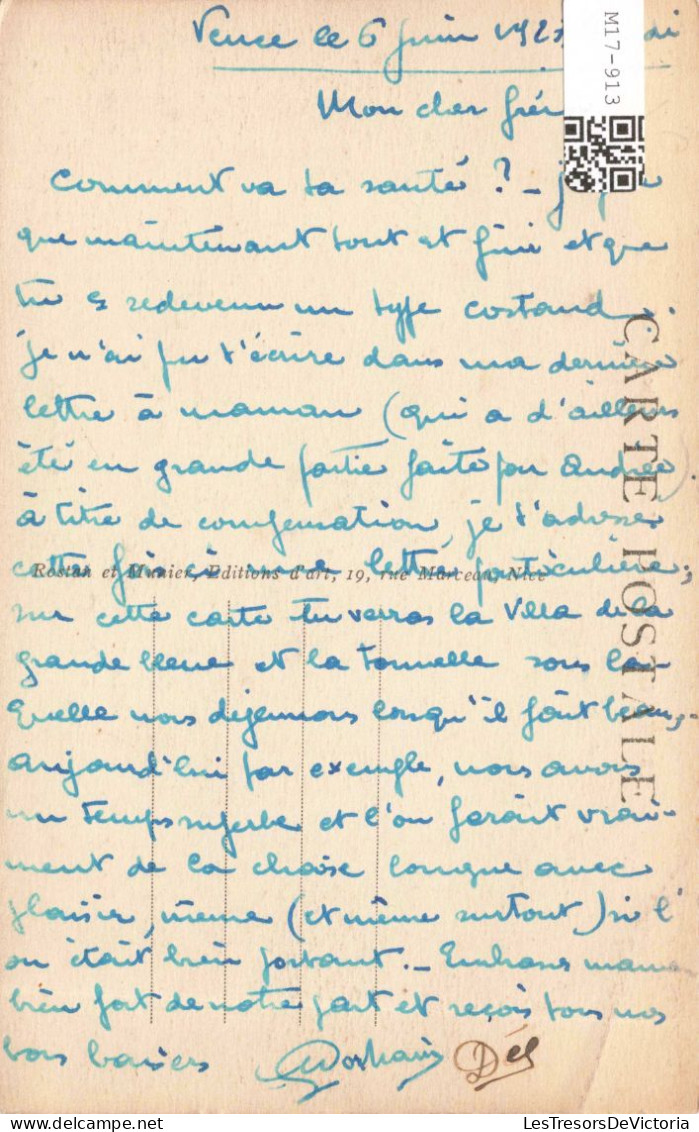 Vence le 6 juin 192
Mon cher frè
M17-913
Comment va ta santé ? _
que maintenant tout est fini et que
tu es redevenu un type costaud.
je n'ai pu t'écrire dans ma dernière
lettre à maman (qui a d'ailleurs
été en grande partie faite par Andrée)
à titre de compensation, je t'adresse
cette fois-ci une lettre particulière;
Rostan et Munier, Editions d'art, 19, rue Marceau, Nice
sur cette carte tu verras la Villa de la
grande bleue et la tonnelle sous la-
quelle nous déjeunons lorsqu'il fait beau;-
aujourd'hui par exemple, nous avons
un temps superbe et l'on ferait vrai-
ment de la chaise longue avec
plaisir, même (et même surtout) si l'
on était bien portant._ Embrasse maman
bien fort de notre part et reçois tous nos
bons baisers
CARTE POSTALE
LesTresorsDeVictoria